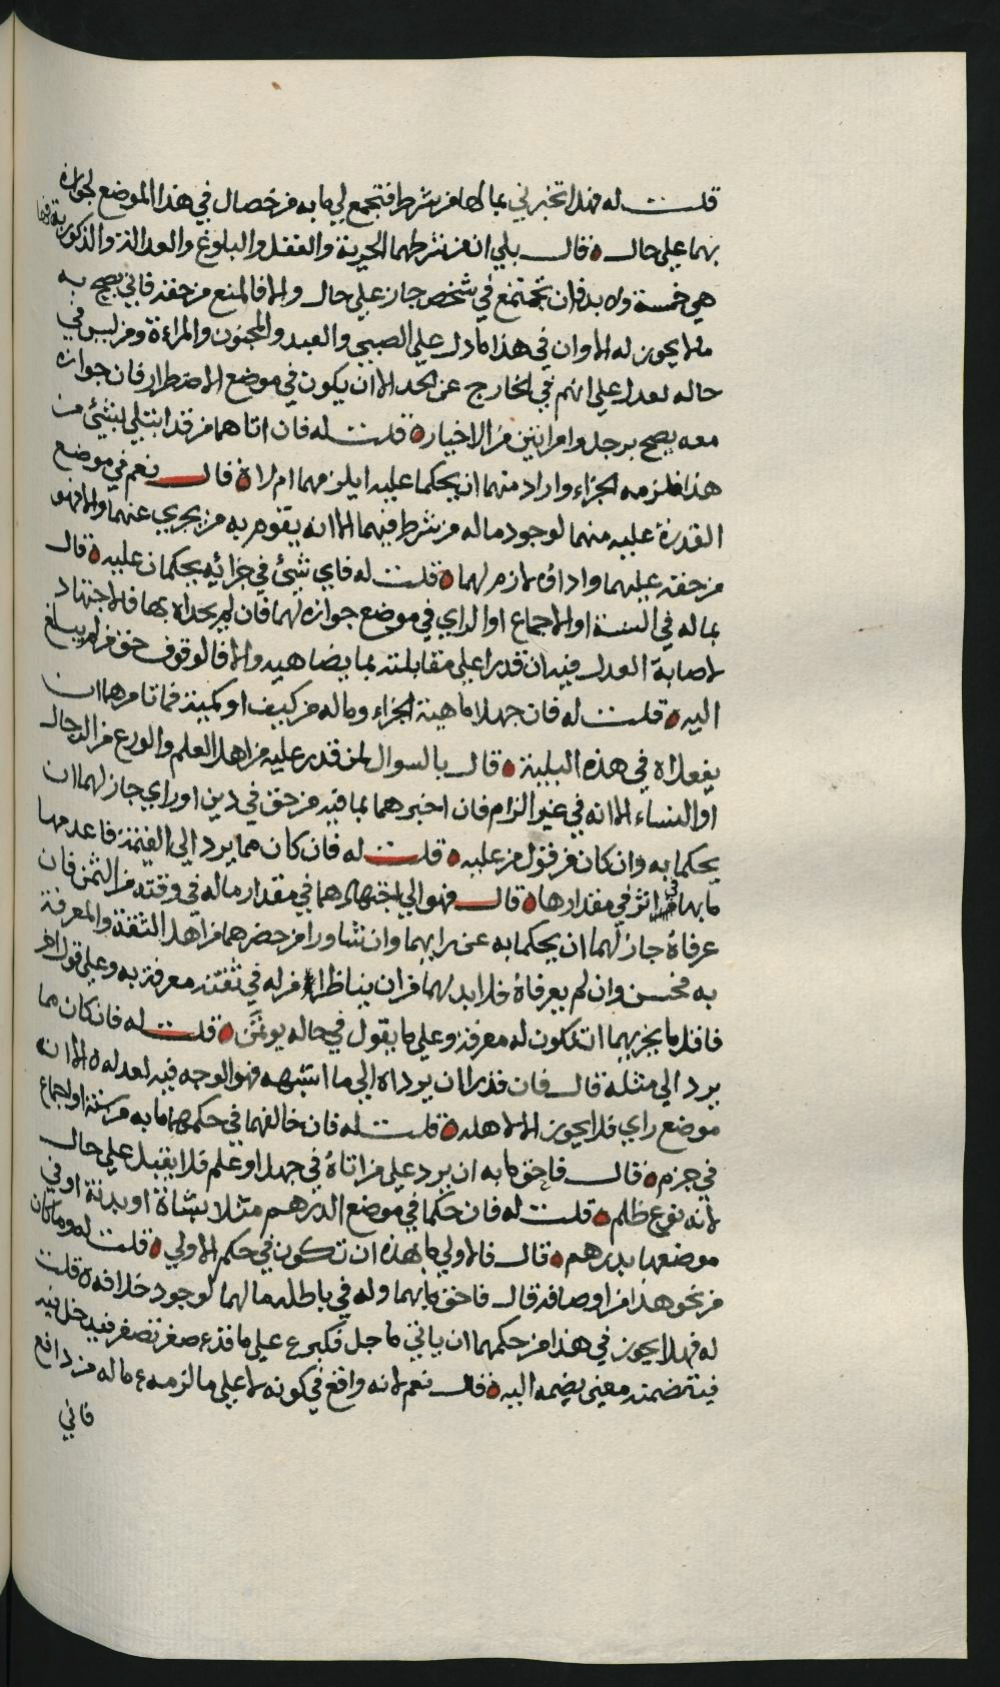 قلت له فهلا تخبرني بما لهما من شرط فتجمع لي ما به من خصال في هذا الموضع لجوازه
بهما علي حال ه قال بلي ان من شرطهما الحرية والعقل والبلوغ والعدالة والذكورية فهما
هي خمسة ولا بد فان تجتمع في شخص جاز علي حال والا فالمنع من حقه فاني يصح به
مالا يجوز له الا وان في هذا مادل علي الصبي والعبد والمجنون والمراءة ومن ليس في
حاله لعدل علي انهم في الخارج عن الحد الا ان يكون في موضع الاضطرار فان جوازه
معه يصح برجل وامراتين من الاخيار ه قلت له فان اتاهما من قد ابتلي بشيئ من
هذا فلزمه الجزاء واراد منهما ان يحكما عليه ايلزمهما ام لا ه قال نعم في موضع
القدرة عليه منهما لوجود ماله من شرط فيهما الا انه يقوم به من يجزي عنهما والا فهو
من حقه عليهما واداؤه لازم لهما ه قلت له فاي شيئ في جزائه يحكمان عليه ه قال
بما له في السنة او الاجماع او الراي في موضع جوازه لهما فان لم يجداه بها فالاجتهاد
لاصابة العدل فيه ان قدرا علي مقابلته بما يضاهيه والا فالوقوف حق من لم يبلغ
اليه ه قلت له فان جهلا ماهية الجزاء وماله من كييف او كمية فما تامرهما ان
يفعلاه في هذه البلية ه قال بالسوال لمن قدر عليه من اهل العلم والورع من الرجال
او النساء الا انه في غير الزام فان اخبرهما بما فيه من حق في دين او راي جاز لهما ان
يحكما به وان كان من قول من عليه ه قلت له فان كان مما يرد الي القيمة فاعدمها
ما بها في اثر في مقدارها ه قال فهو الي اجتهادهما في مقدار ماله في وقته من الثمن فان
عرفاه جاز لهما ان يحكما به عن رايهما وان تشاورا من حضرهما من اهل الثقة والمعرفة
به فحسن وان لم يعرفاه فلا بد لهما من ان يناظرا من له في ثقته معرفة به وعلي قول اخر
فاقل ما يجزيهما ان تكون له معرفة وعلي ما يقول في حاله يوتمن ه قلت له فان كان مما
يرد الي مثله قال فان قدرا ان يرداه الي ما اشبهه فهو الوجه فيه لعدله ه الا انه
موضع راي فلا يجوز الا لاهله ه قلت له فان خالفهما في حكمهما ما به من سنة او اجماع
في جزم ه قال فاحق ما به ان يرد علي من اتاه في جهل او علم فلا يقبل علي حال
لانه نوع ظلم ه قلت له فان حكما في موضع الدرهم مثلا بشاة او بدنة او في
موضعها بدرهم ه قال فالاولي ما بهذه ان تكون في حكم الاولي ه قلت له وما كان
من نحو هذا من اوصافه قال فاحق ما بهما وله في باطله مالهما لوجود خلافه ه قلت
له فهل يجوز في هذا من حكمهما ان ياتي ما جل فكبر ع علي ما قد ع صغر تصغر فيدخل فيه
فيتضمنه معني يضمه اليه ه قال نعم لانه واقع في كونه لا علي ما لزمه ع ما له من دافع
فاني